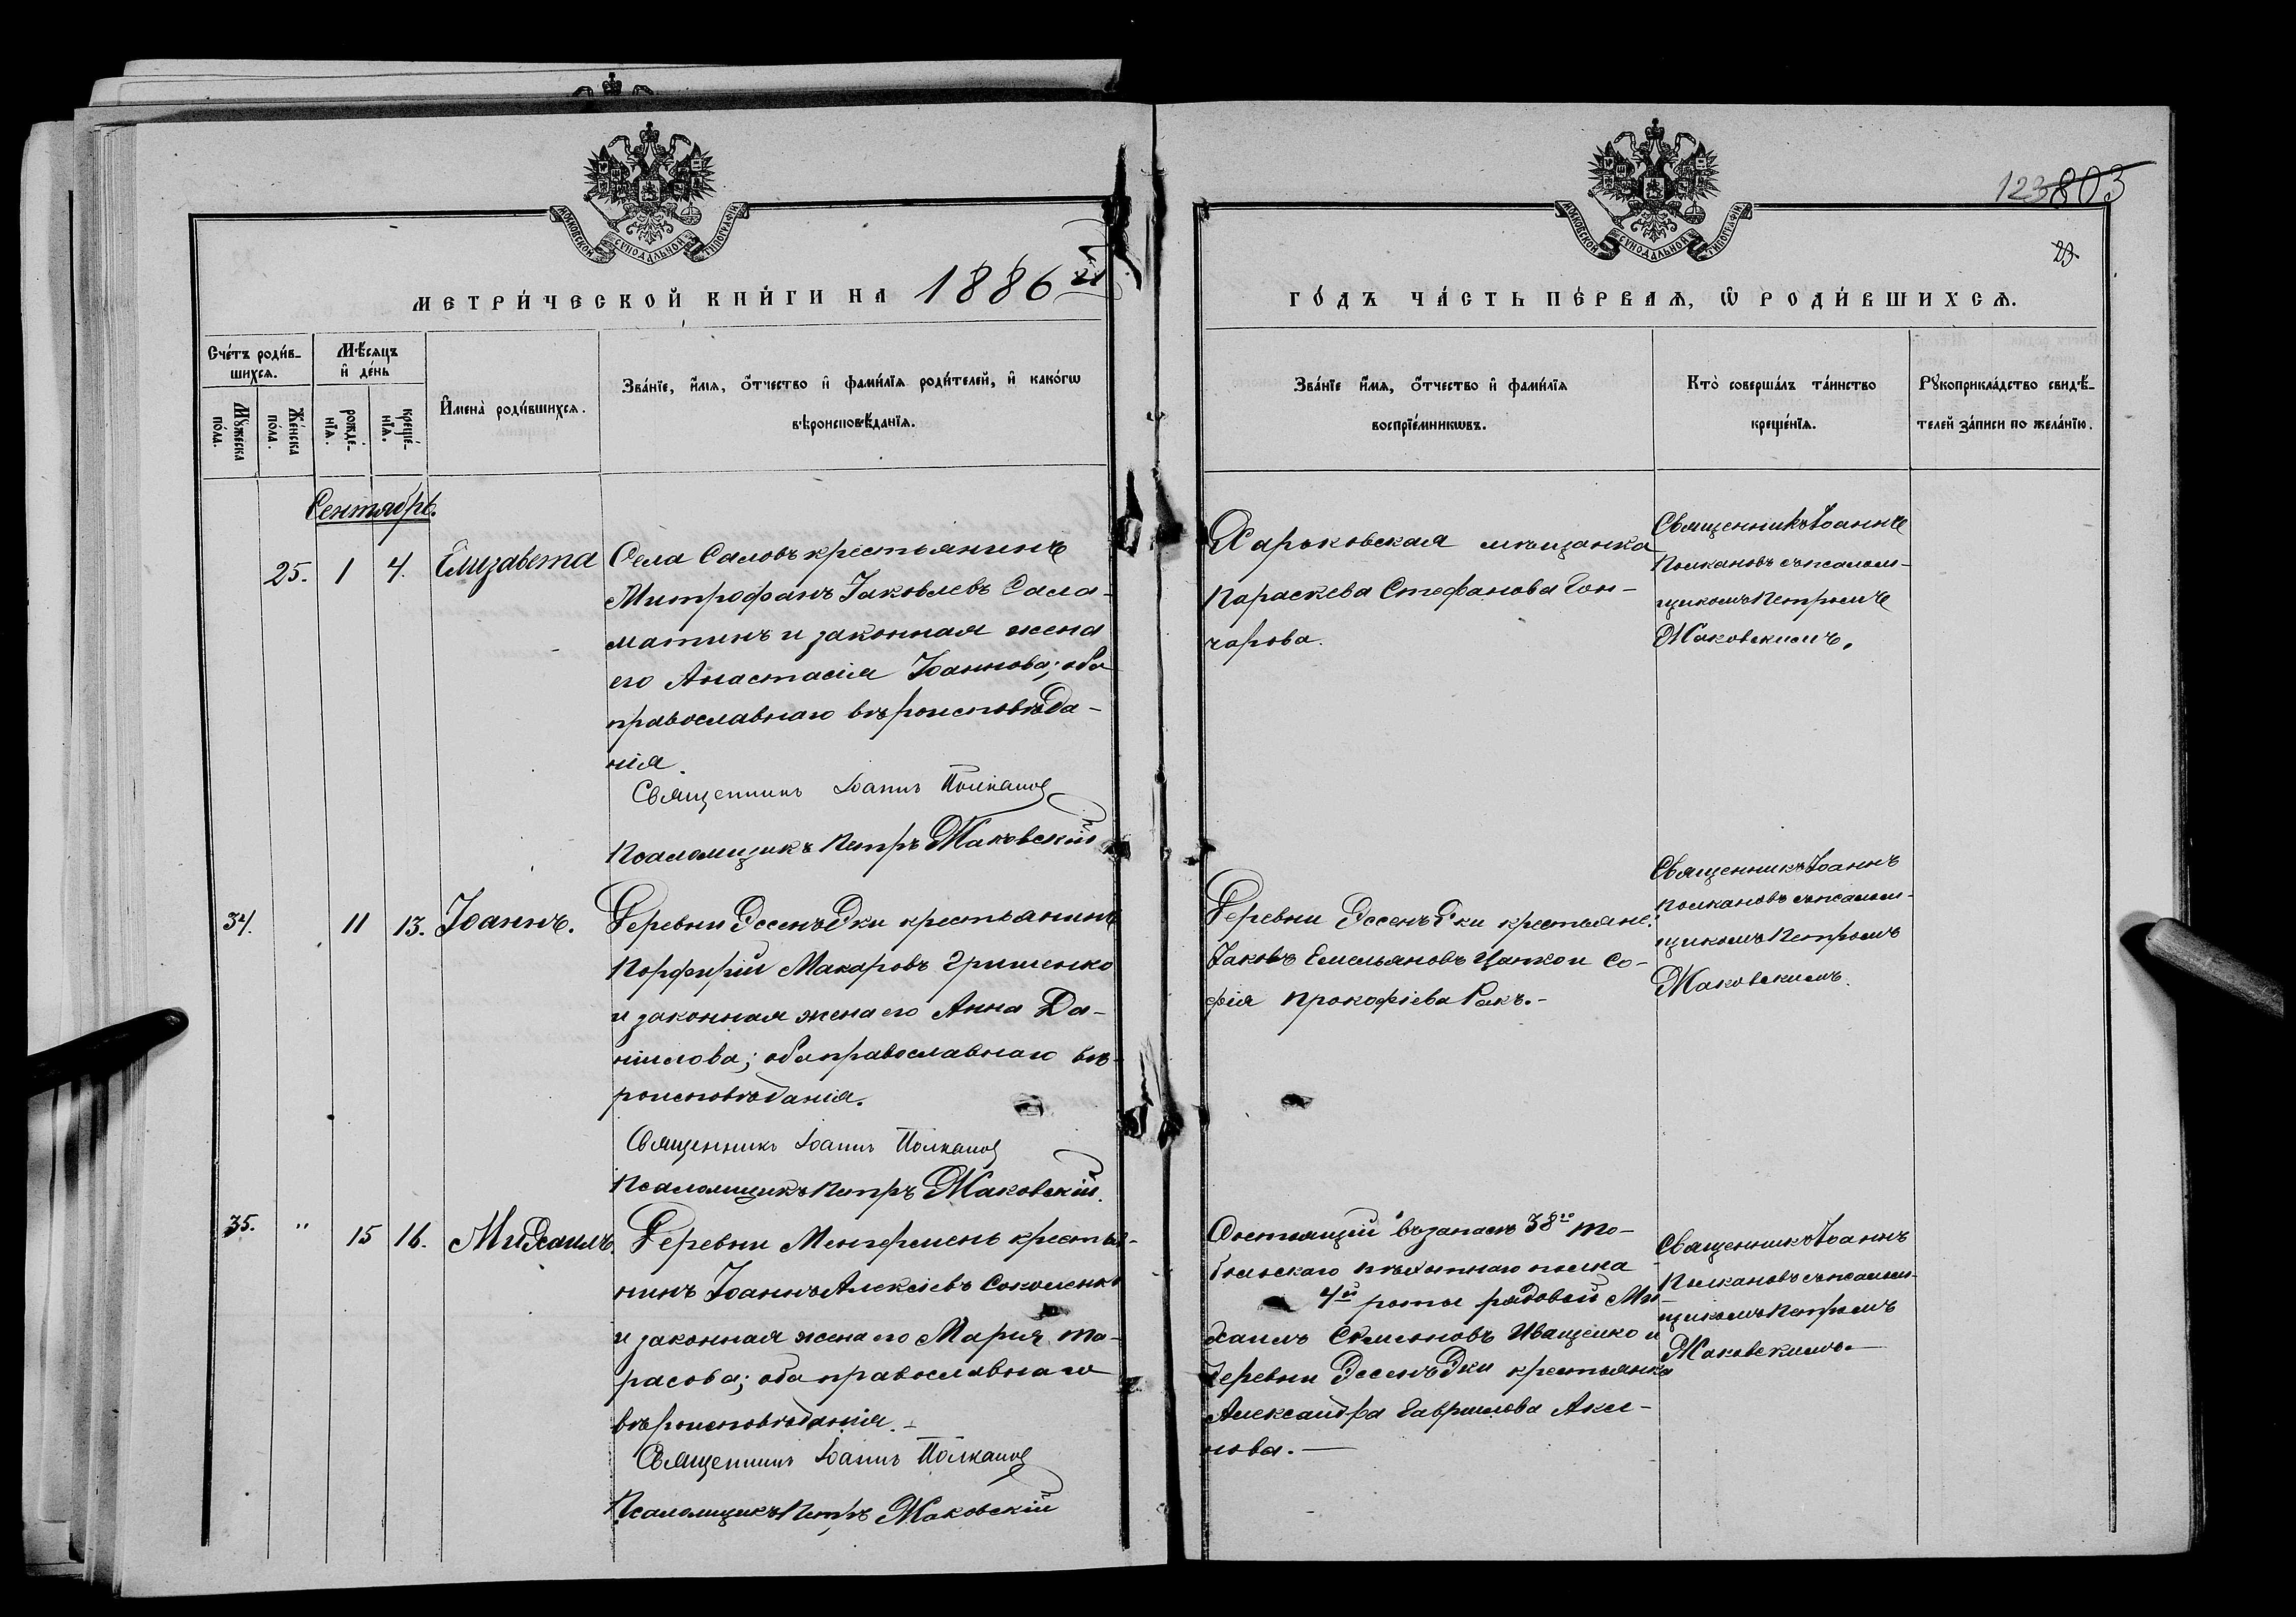 МОСКОВСКОЙ СУНОДАЛЬНОЙ ТИПОГРАФІИ
МЕТРИ́ЧЕСКОЙ КНИ́ГИ НА 1886й
Сче́тъ роди́в-
шихся.
Мѣ́сяцъ
и҆ де́нь
Мꙋ́жеска
по́ла.
Же́нска
по́ла.
рожде́-
нїя.
креще́-
нїя.
И҆мена̀ роди́вшихся.
Зва́нїе, и҆́мя, ѻ҆́тчество и҆ фами́лїя роди́телей, и҆ како́гѡ
вѣроисповѣ́данїя.
Сентябрь.
25. 1 4. Елизавета
Села Саловъ крестьянинъ
Митрофанъ Іаковлевъ Сала-
матинъ и законная жена
его Анастасія Іоаннова; оба
православнаго вѣроисповѣда-
нія.
Священникъ Іоаннъ Полкановъ
Псаломщикъ Петръ Жаковскій
34. 11 13. Іоаннъ.
Деревни Эссенъ Эки крестьянинъ
Порфирій Макаровъ Гришенко
и законная жена его Анна Да-
ніилова; оба православнаго вѣ-
роисповѣданія.
Священникъ Іоаннъ Полкановъ
Псаломщикъ Петръ Жаковскій.
35. " 15 16. Михаилъ.
Деревни Менгермень крестья-
нинъ Іоаннъ Алексіевъ Соколенко
и законная жена его Марія Та-
расова; оба православнаго
вѣроисповѣданія.-
Священникъ Іоаннъ Полкановъ
Псаломщикъ Петръ Жаковскій
МОСКОВСКОЙ СУНОДАЛЬНОЙ ТИПОГРАФІИ
123 803
23
ГО́ДЪ ЧА́СТЬ ПЕ́РВАЯ, Ѡ҆ РОДИ́ВШИХСЯ.
Зва́нїе и҆́мя, ѻ҆́тчество и҆ фами́лїя
воспрїе́мникѡвъ.
Кто̀ соверша́лъ та́инство
креще́нїя.
Рꙋкоприкла́дство свидѣ́-
телей за́писи по жела́нїю.
Харьковская мѣщанка
Параскева Стефанова Гон-
чарова.
Священникъ Іоаннъ
Полкановъ съ псалом-
щикомъ Петромъ
Жаковскимъ.
Деревни Эссенъ Эки крестьяне:
Іаковъ Емельяновъ Цапко и Со-
фія Прокофіева Ракъ.-
Священникъ Іоаннъ
Полкановъ съ псалом-
щикомъ Петромъ
Жаковскимъ.
Состоящій въ запасѣ 38го То-
больскаго пѣхотнаго полка
4й роты рядовой Ми-
хаилъ Семеновъ Иващенко и
деревни Эссенъ Эки крестьянка
Александра Гаврилова Аксе-
нова.-
Священникъ Іоаннъ
Полкановъ съ псалом-
щикомъ Петромъ
Жаковскимъ.-